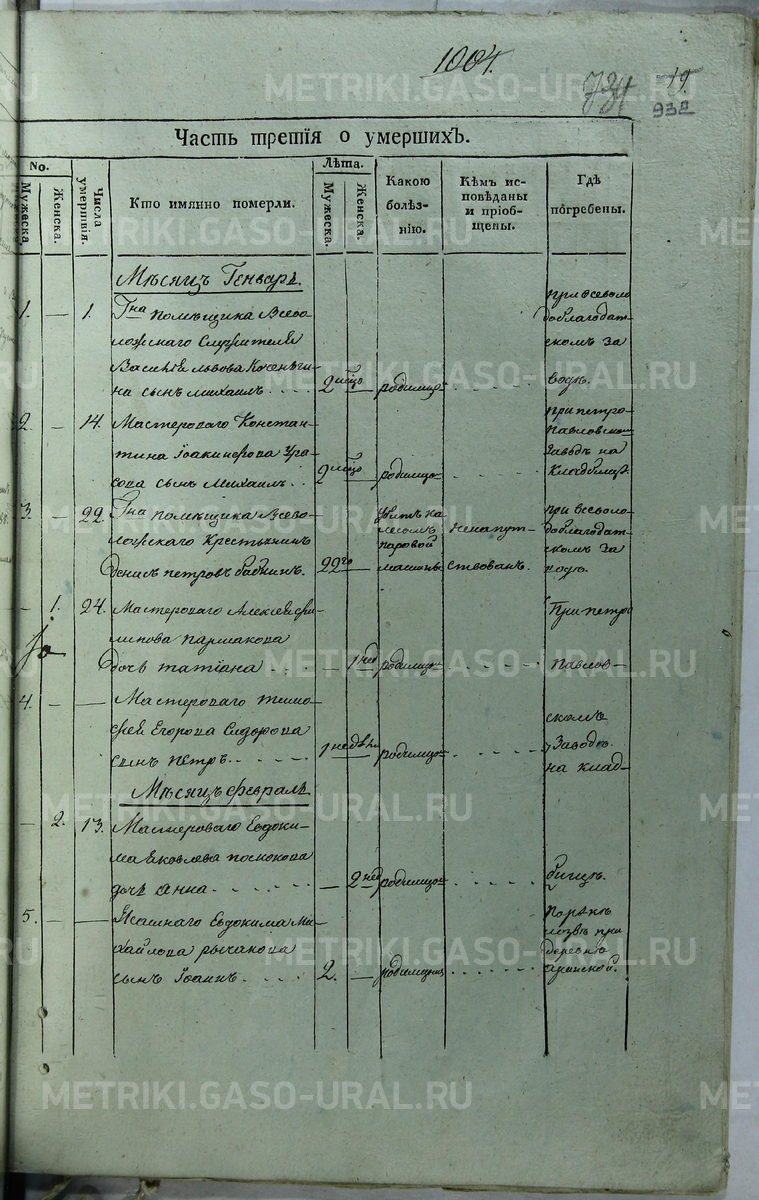 1004.
19.
932
Часть третія о умершихъ.
No.
Мужеска.
Женска.
Числа умершвія.
Кто имянно померли.
Лѣта.
Мужеска.
Женска.
Какою
болѣз-
нію.
Кѣмъ ис-
повѣданы
и пріоб-
щены.
Гдѣ
погребены.
Мѣсяцъ Генварь.
1. — 1. Гна помѣщика Всево-
ложскаго Служителя
Василія Львова
на сынъ Михаилъ . . . . 2 — родимцо . . . .
при всеволо
доблагодат
скомъ за
водѣ.
2. — 14. Мастероваго Констан-
тина Іоакимова
сынъ Михаилъ . . 2 — родимцо . . . .
при петро
павловском
Заводѣ на
3. — 22. Гна помѣщика Всево-
ложскаго Крестьянинъ
Денисъ Петровъ 22го —
паровой
машин
ненапут-
ствованъ.
при всеволо
доблагодат
скомъ за
водѣ.
— 1. 24. Мастероваго Алексея Фи-
липова
дочь татіана . . . . — 1 нед родимцо . . . .
При петро
павлов-
4. — — Мастероваго тимо
фея Егорова Сидорова
сынъ петръ . . . . 1 недѣли — родимцо . . . .
скомъ
Заводѣ
на клад-
Мѣсяцъ февраль
— 2. 13. Мастероваго Евдоки-
ма Яковлева
дочь анна . . . . — 2 нед родимцо . . . .
бищѣ.
5. — — Ясашнаго Евдокима Ми
хайлова
сынъ Іоаннъ . . . . 2. — родимцомъ . . . .
при
деревнѣ
METRIKI.GASO-URAL.RU